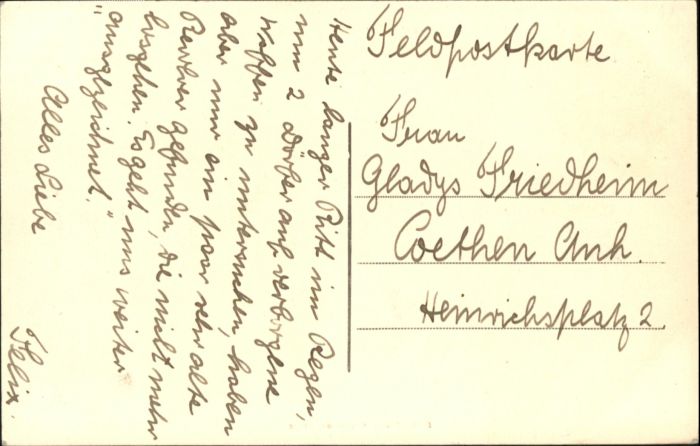 Feldpostkarte
Frau
Gladys Friedheim
Coethen Anh.
Heinrichsplatz 2.
Heute langer Ritt im Regen,
um 2 Dörfer auf verborgene
Waffen zu untersuchen, haben
aber nur ein paar sehr alte
Revolver gefunden, die nicht mehr
losgehen. Es geht uns weiter
"ausgezeichnet."
Alles Liebe
Felix.